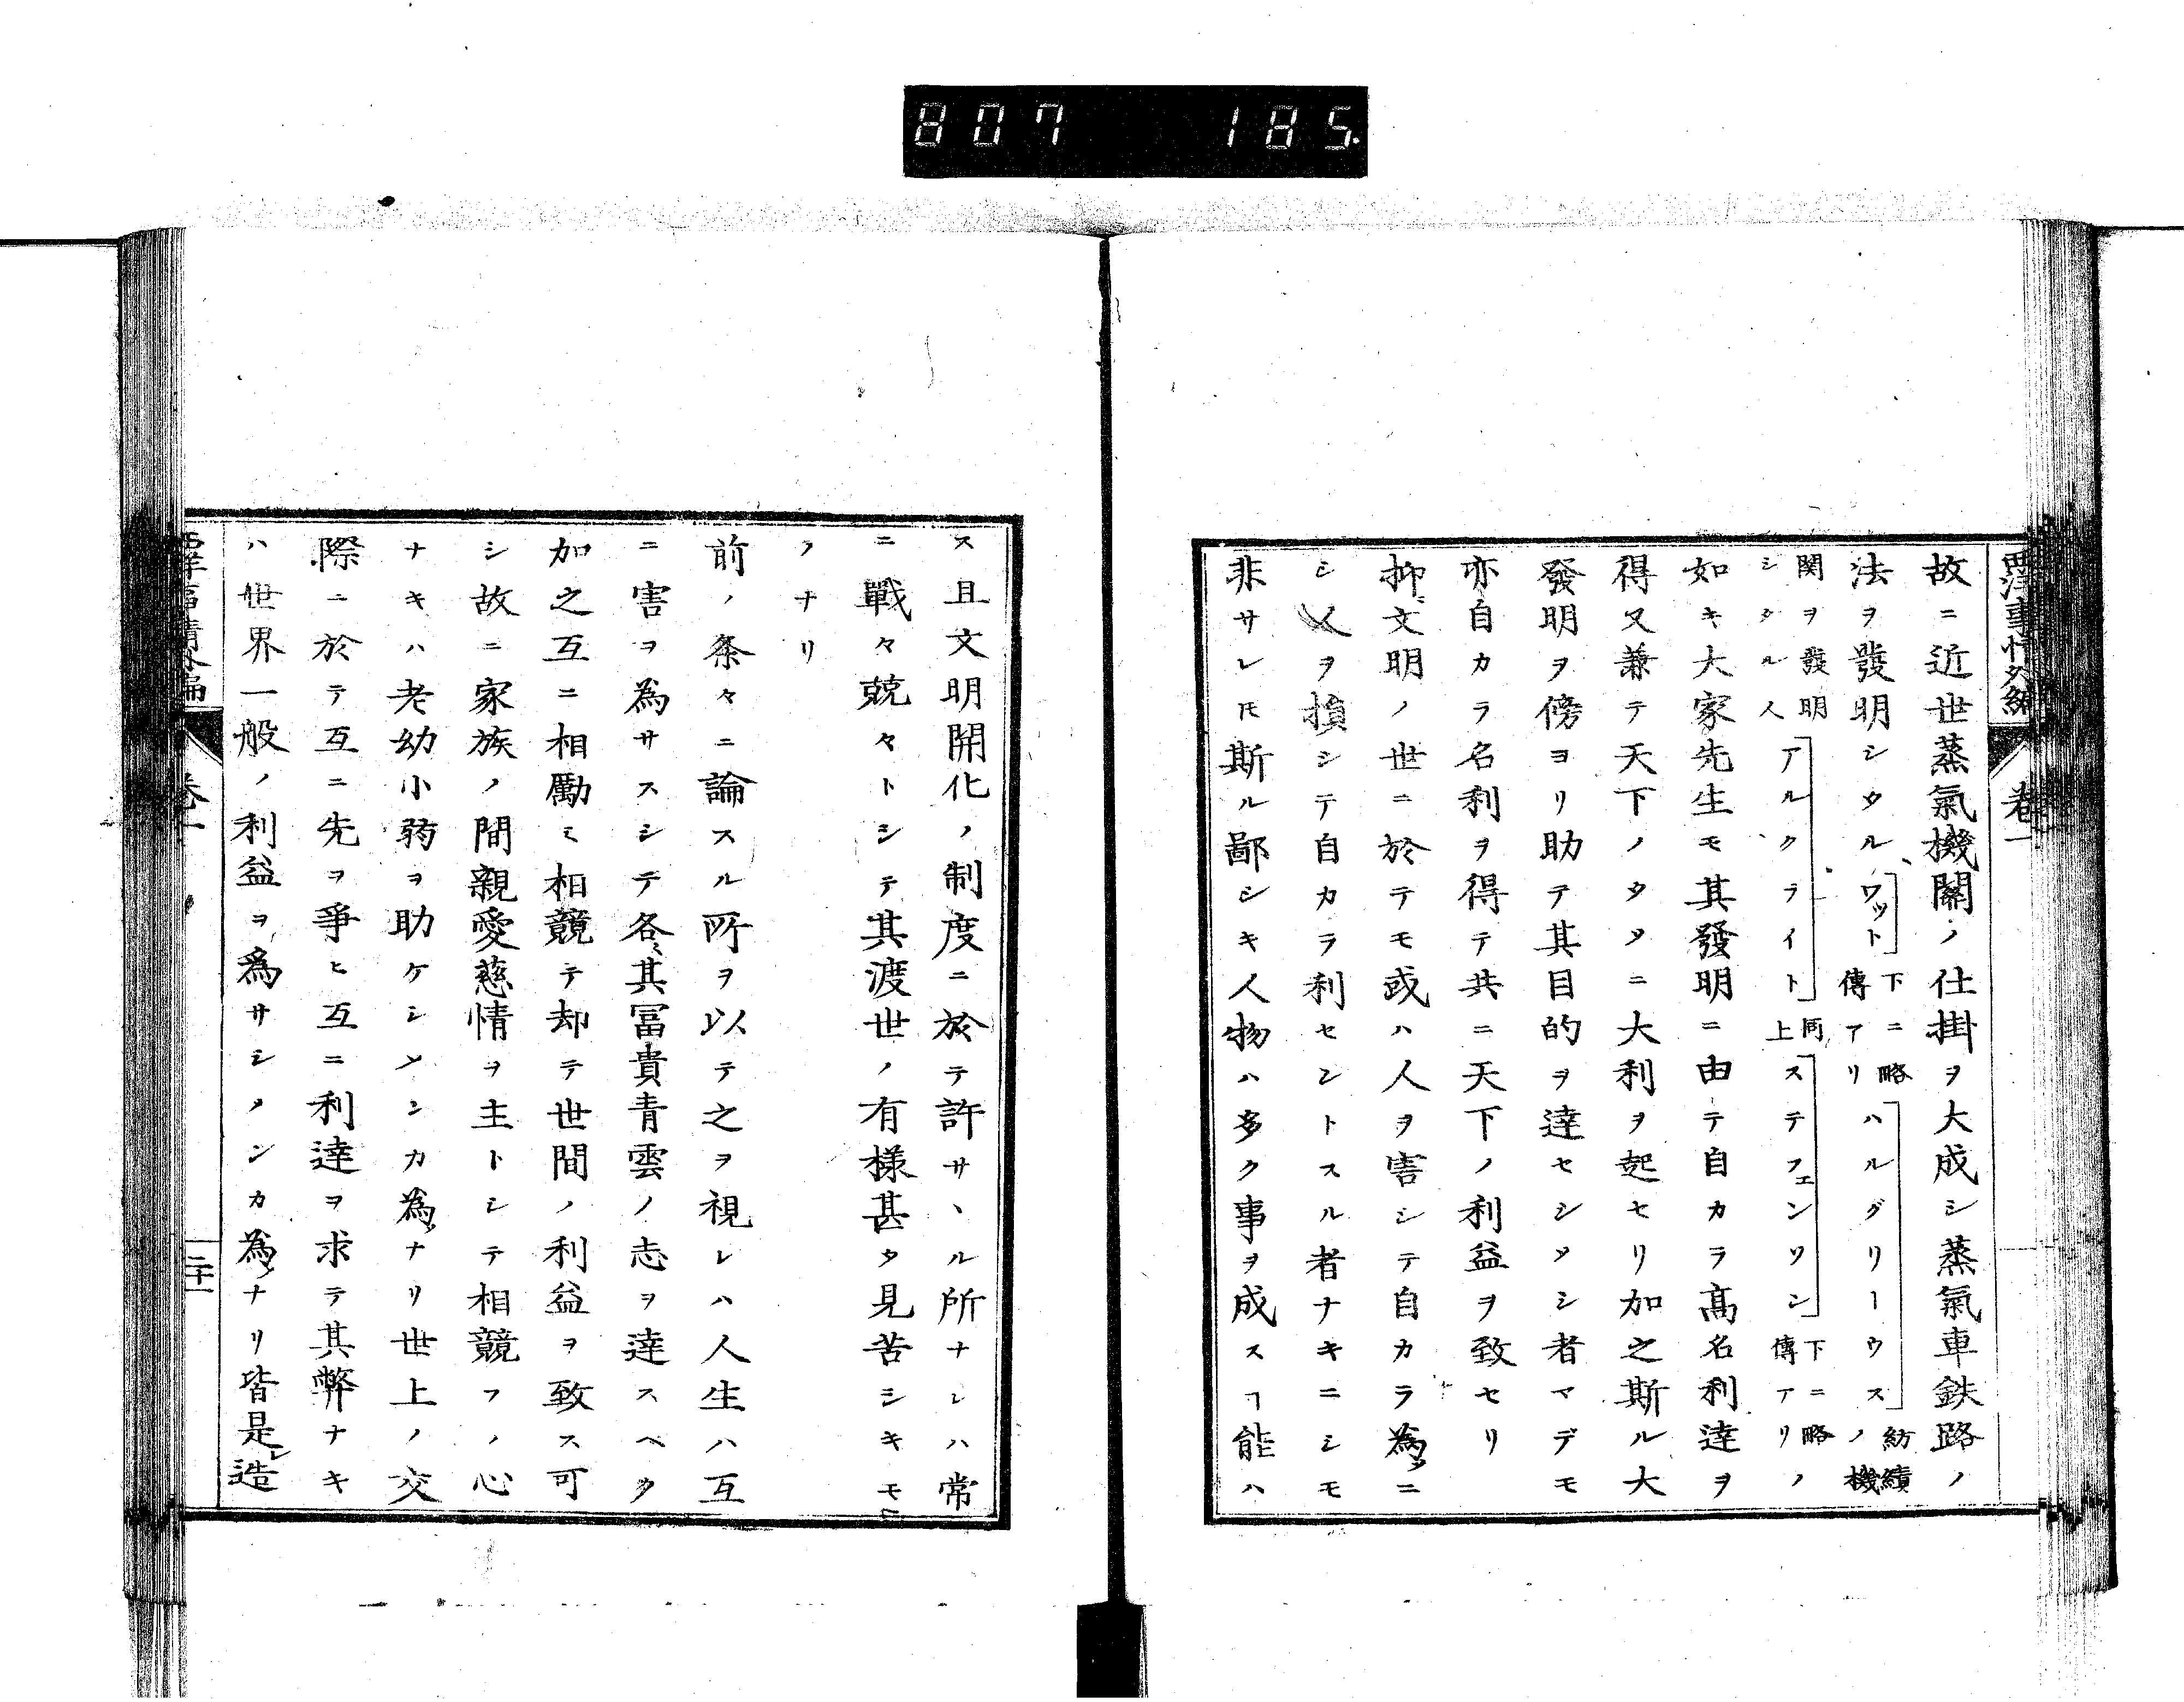 807 185.
西洋事情外編 巻一
故ニ近世蒸氣機關ノ仕掛ヲ大成シ蒸氣車鉄路ノ
法ヲ發明シタルワット下ニ略傳アリハルグリーウス紡績ノ機
関ヲ發明シタル人アルクライト同上ステフェンソン下ニ略傳アリノ
如キ大家先生モ其發明ニ由テ自カラ高名利達ヲ
得又兼テ天下ノタメニ大利ヲ起セリ加之斯ル大
發明ヲ傍ヨリ助テ其目的ヲ達セシメシ者マデモ
亦自カラ名利ヲ得テ共ニ天下ノ利益ヲ致セリ
抑文明ノ世ニ於テモ或ハ人ヲ害シテ自カラ為メニ
シ人ヲ損シテ自カラ利セントスル者ナキニシモ
非サレ𪜈斯ル鄙シキ人物ハ多ク事ヲ成スヿ能ハ
ス且文明開化ノ制度ニ於テ許サヽル所ナレハ常
ニ戰々兢々トシテ其渡世ノ有樣甚タ見苦シキモ
ノナリ
前ノ条々ニ論スル所ヲ以テ之ヲ視レハ人生ハ互
ニ害ヲ為サスシテ各〻其冨貴青雲ノ志ヲ達スベク
加之互ニ相勵ミ相競テ却テ世間ノ利益ヲ致ス可
シ故ニ家族ノ間親愛慈情ヲ主トシテ相競フノ心
ナキハ老幼小弱ヲ助ケシメンカ為メナリ世上ノ交
際ニ於テ互ニ先ヲ爭ヒ互ニ利達ヲ求テ其弊ナキ
ハ世界一般ノ利益ヲ爲サシメンカ為メナリ皆是レ造
西洋事情外編 巻一 二十一